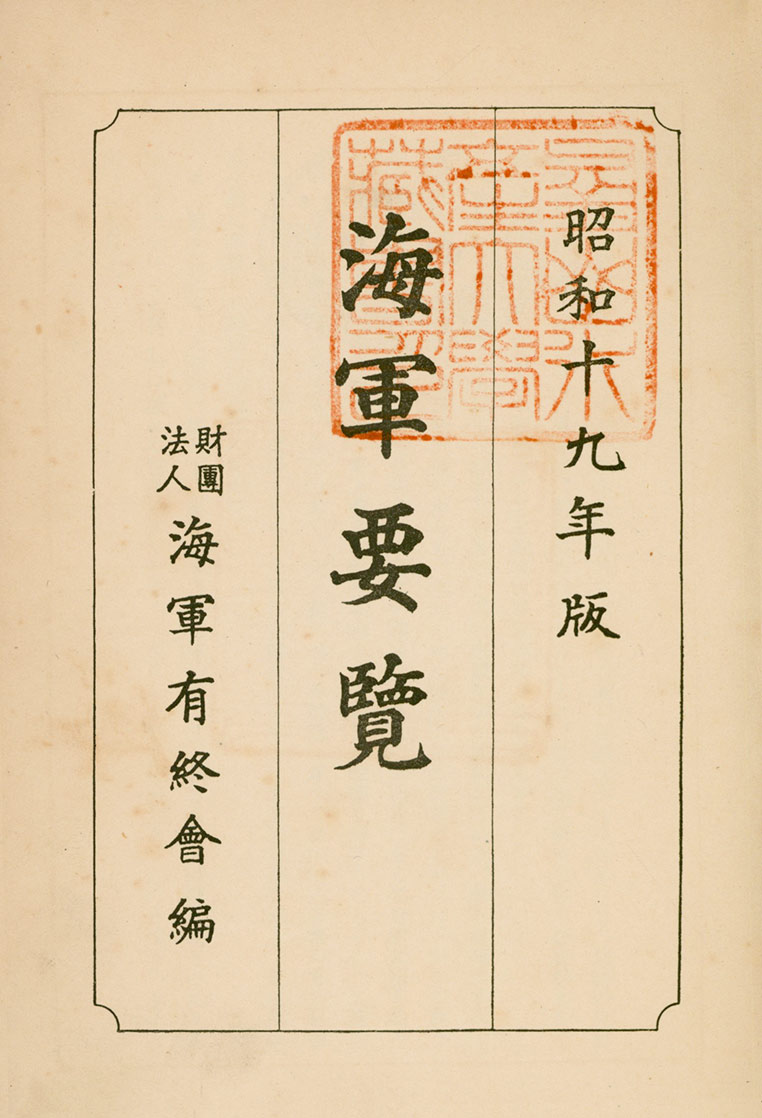 昭和十九年版
海軍要覽
財團
法人
海軍有終會編